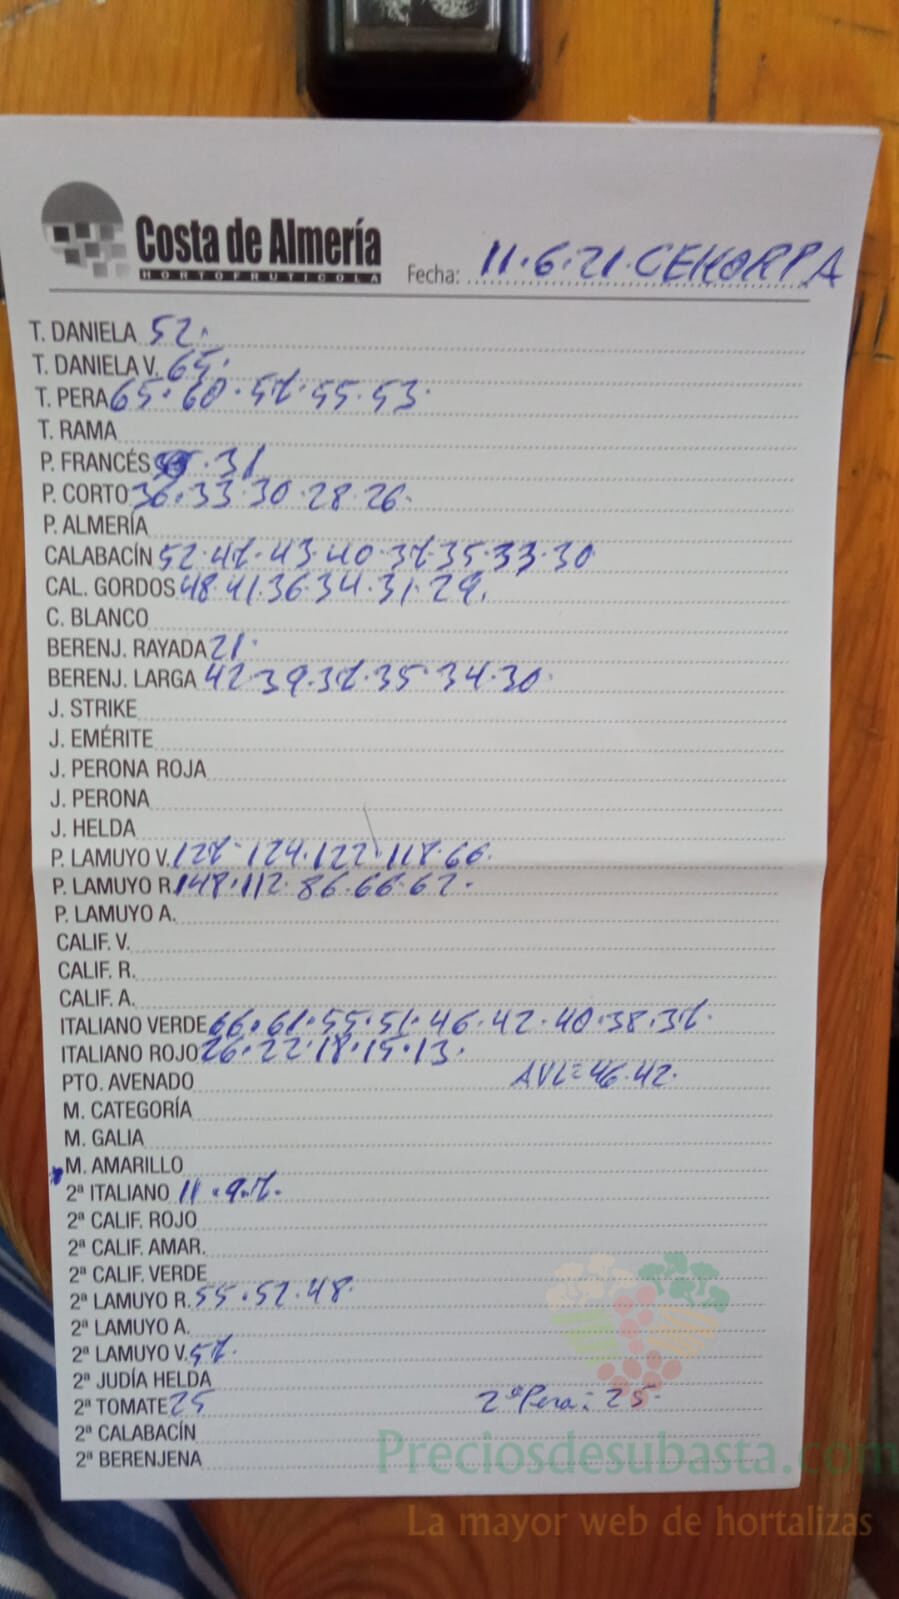 Costa de Almería
HORTOFRUTICOLA
Fecha: 11.6.21. CEHORPA
T. DANIELA 52.
T. DANIELA V. 65.
T. PERA 65. 60. 57. 55. 53.
T. RAMA
P. FRANCÉS . 31
P. CORTO 36. 33. 30. 28. 26.
P. ALMERÍA
CALABACÍN 52. 47. 43. 40. 37. 35. 33. 30
CAL. GORDOS 48. 41. 36. 34. 31. 29.
C. BLANCO
BERENJ. RAYADA 21.
BERENJ. LARGA 42. 39. 37. 35. 34. 30.
J. STRIKE
J. EMÉRITE
J. PERONA ROJA
J. PERONA
J. HELDA
P. LAMUYO V. 127. 124. 122. 117. 66.
P. LAMUYO R. 147. 112. 86. 66. 62.
P. LAMUYO A.
CALIF. V.
CALIF. R.
CALIF. A.
ITALIANO VERDE 66. 61. 55. 51. 46. 42. 40. 38. 37.
ITALIANO ROJO 26. 22. 18. 15. 13.
PTO. AVENADO AVL= 46. 42.
M. CATEGORÍA
M. GALIA
M. AMARILLO
2ª ITALIANO 11. 9. 7.
2ª CALIF. ROJO
2ª CALIF. AMAR.
2ª CALIF. VERDE
2ª LAMUYO R. 55. 52. 48.
2ª LAMUYO A.
2ª LAMUYO V. 57.
2ª JUDÍA HELDA
2ª TOMATE 25 2ª Pera: 25.
2ª CALABACÍN
2ª BERENJENA
Preciosdesubasta.com
La mayor web de hortalizas